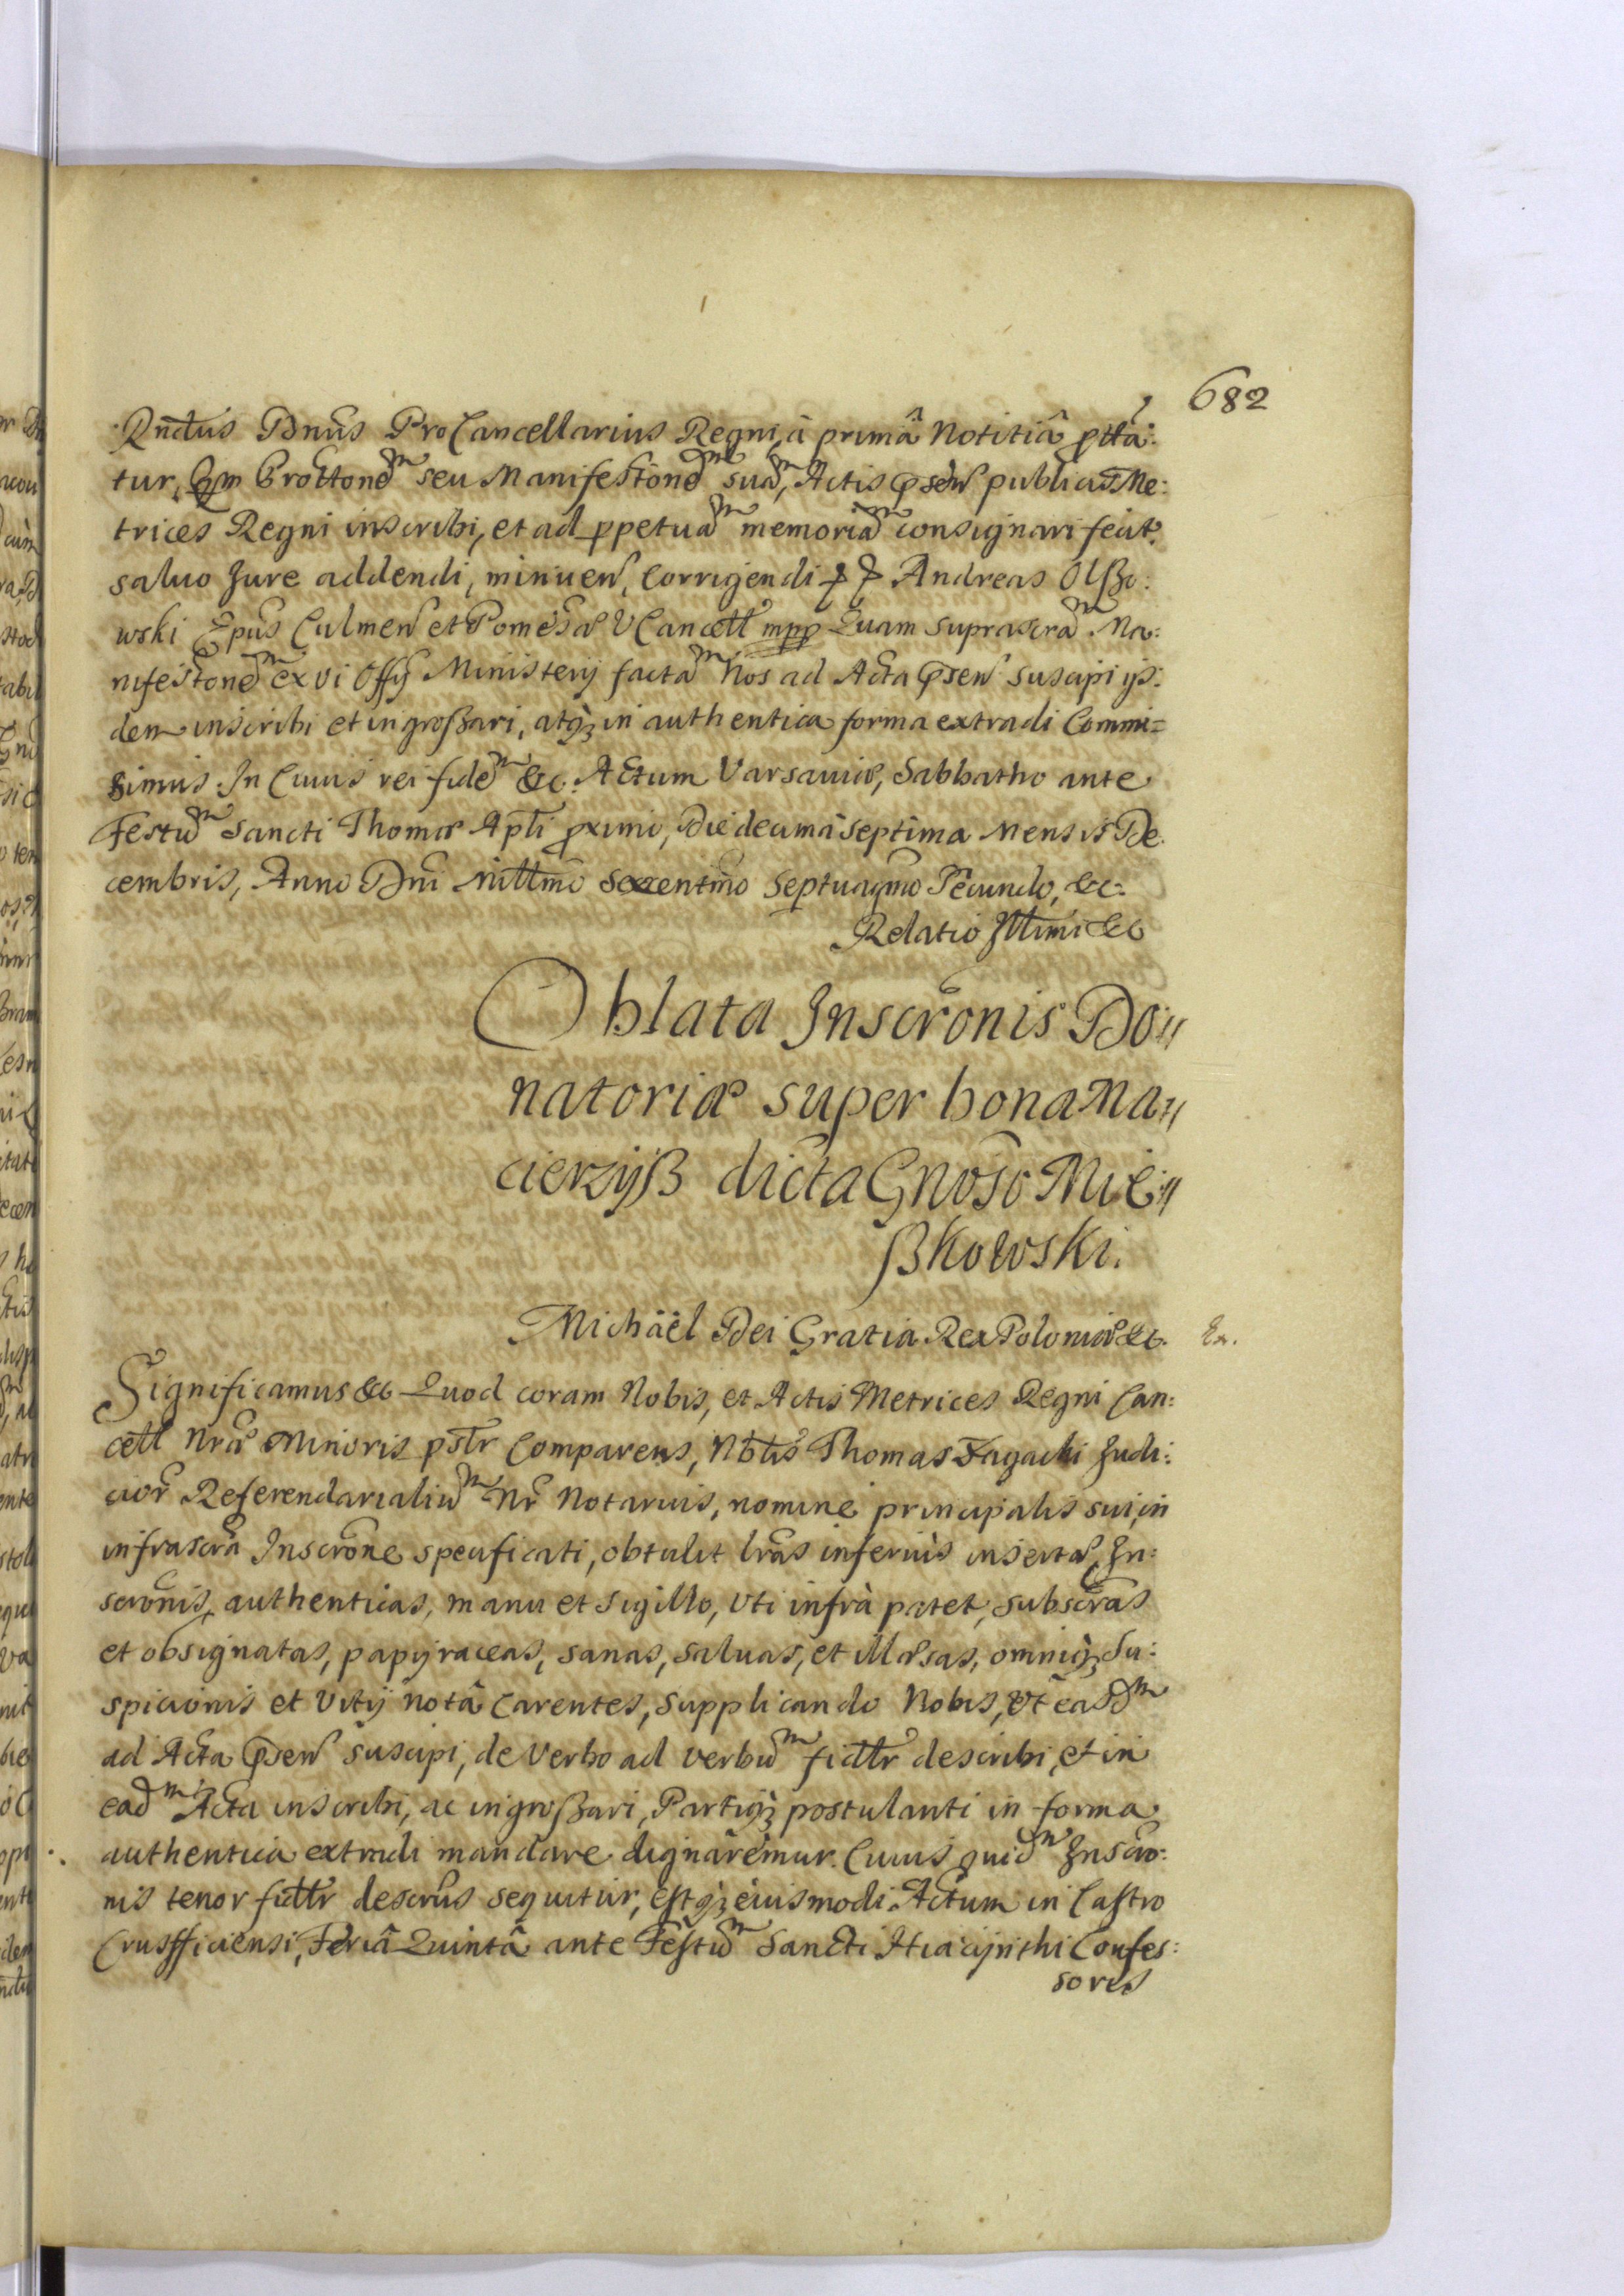 682
Rndus Dnus ProCancellarius Regni, à primâ Notitiâ ptta:
tur, Qm Prottone͠m seu Manifestione͠m sua͠m, Actis psen̄ publicis Me:
trices Regni inscribi, et ad ppetua͠m memoria͠m consignari fecit.
saluo Jure addendi, minuen̄, Corrigendi & & Andreas Olßo:
wski Epus̄ Culmen̄ et Pomesaæ VCancell mpp Quam suprascra͠m Ma:
nifestone͠m ex vi Offij Ministerij facta͠m Nos ad Acta psen̄ suscipi ijs:
dem inscribi et ingroßari, atq₃ in authentica forma extradi Commi=
simus. In Cuius rei fide͠m &c. Actum Varsauiæ, Sabbatho ante
Festu͠m Sancti Thomæ Apli pximo, Die decimâ septima Mensis De
cembris, Anno Dni Millmo sexcentmo Septuagmo Secundo, &c.
Relatio Illmi &c
Oblata Inscronis Do=
natoriæ super bona Ma=
cierzyß dicta Gnoso Mie=
ßkowski.
Michaël Dei Gratia Rex Poloniæ &c. Ex.
Significamus &c Quod coram Nobis, et Actis Metrices Regni Can:
cell Nræ Minoris pstr Comparens, Nblis Thomas Zagacki Judi:
cior Referendarialiu͠m Nr Notarius, nomine principalis sui, in
infrascra Inscrone specificati, obtulit lras inferiùs insertæ, In:
scronis, authenticas, manu et Sigillo, Vti infrà patet, subscras
et obsignatas, papyraceas, sanas, saluas, et illæsas, omniq₃ Su:
spicionis et Vitij notâ Carentes, supplicando Nobis, Vt easd͠m
ad Acta psen̄ suscipi, de Verbo ad verbu͠m fidlr describi, et in
ead͠m Acta inscribi, ac ingroßari, Partiq₃ postulanti in forma
authentica extradi mandare dignaremur. Cuius quid͠m Inscro:
nis tenor fidlr descrus sequitur, estq₃ eiusmodi. Actum in Castro
Crusfficiensi, Feriâ Quintâ ante Festu͠m Sancti Hiacijnthi Confes:
soris